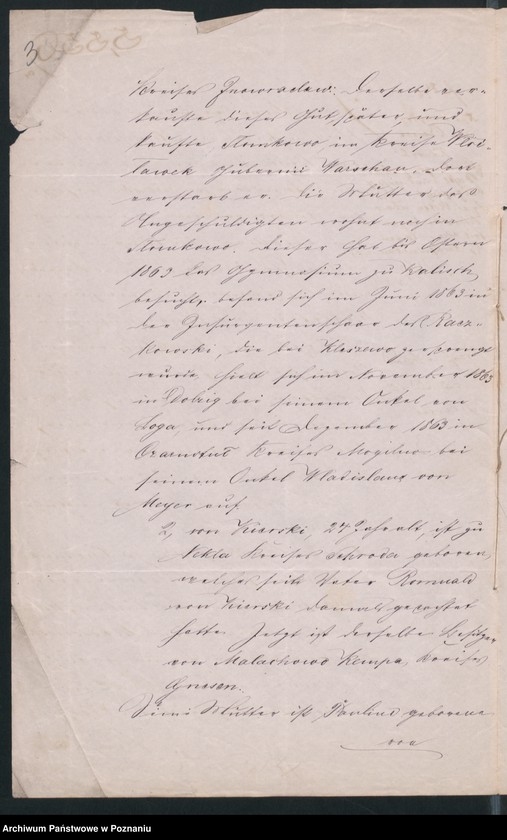 3
Kreises Inowraclaw. Derselbe ver-
kaufte dieses Gut später und
kaufte Slomkowo im Kreise Wloc-
lawek Guberni Warschau, dort
verstarb er. Die Mutter des
Angeschuldigten wohnt noch in
Slomkowo. Dieser hat bis Ostern
1863 das Gymnasium zu Kalisch
besucht, befand sich im Juni 1863 in
der Insurgentenschaar des Racz-
kowski, die bei Kleszewo zersprengt
wurde, hielt sich im November 1863
in Dolzig bei seinem Onkel von
Loga, und seit Dezember 1863 in
Kreises Mogilno bei
seinem Onkel Wladislaus von
Meyer auf
2, von Kierski, 24 Jahr alt, ist zu
Nekla Kreises Schroda geboren,
welches sein Vater Romuald
von Kierski damals gepachtet
hatte. Jetzt ist derselbe Besitzer
von Malachowo Kempa, Kreises
Gnesen.
Seine Mutter ist Pauline geborene
von
Archiwum Państwowe w Poznaniu